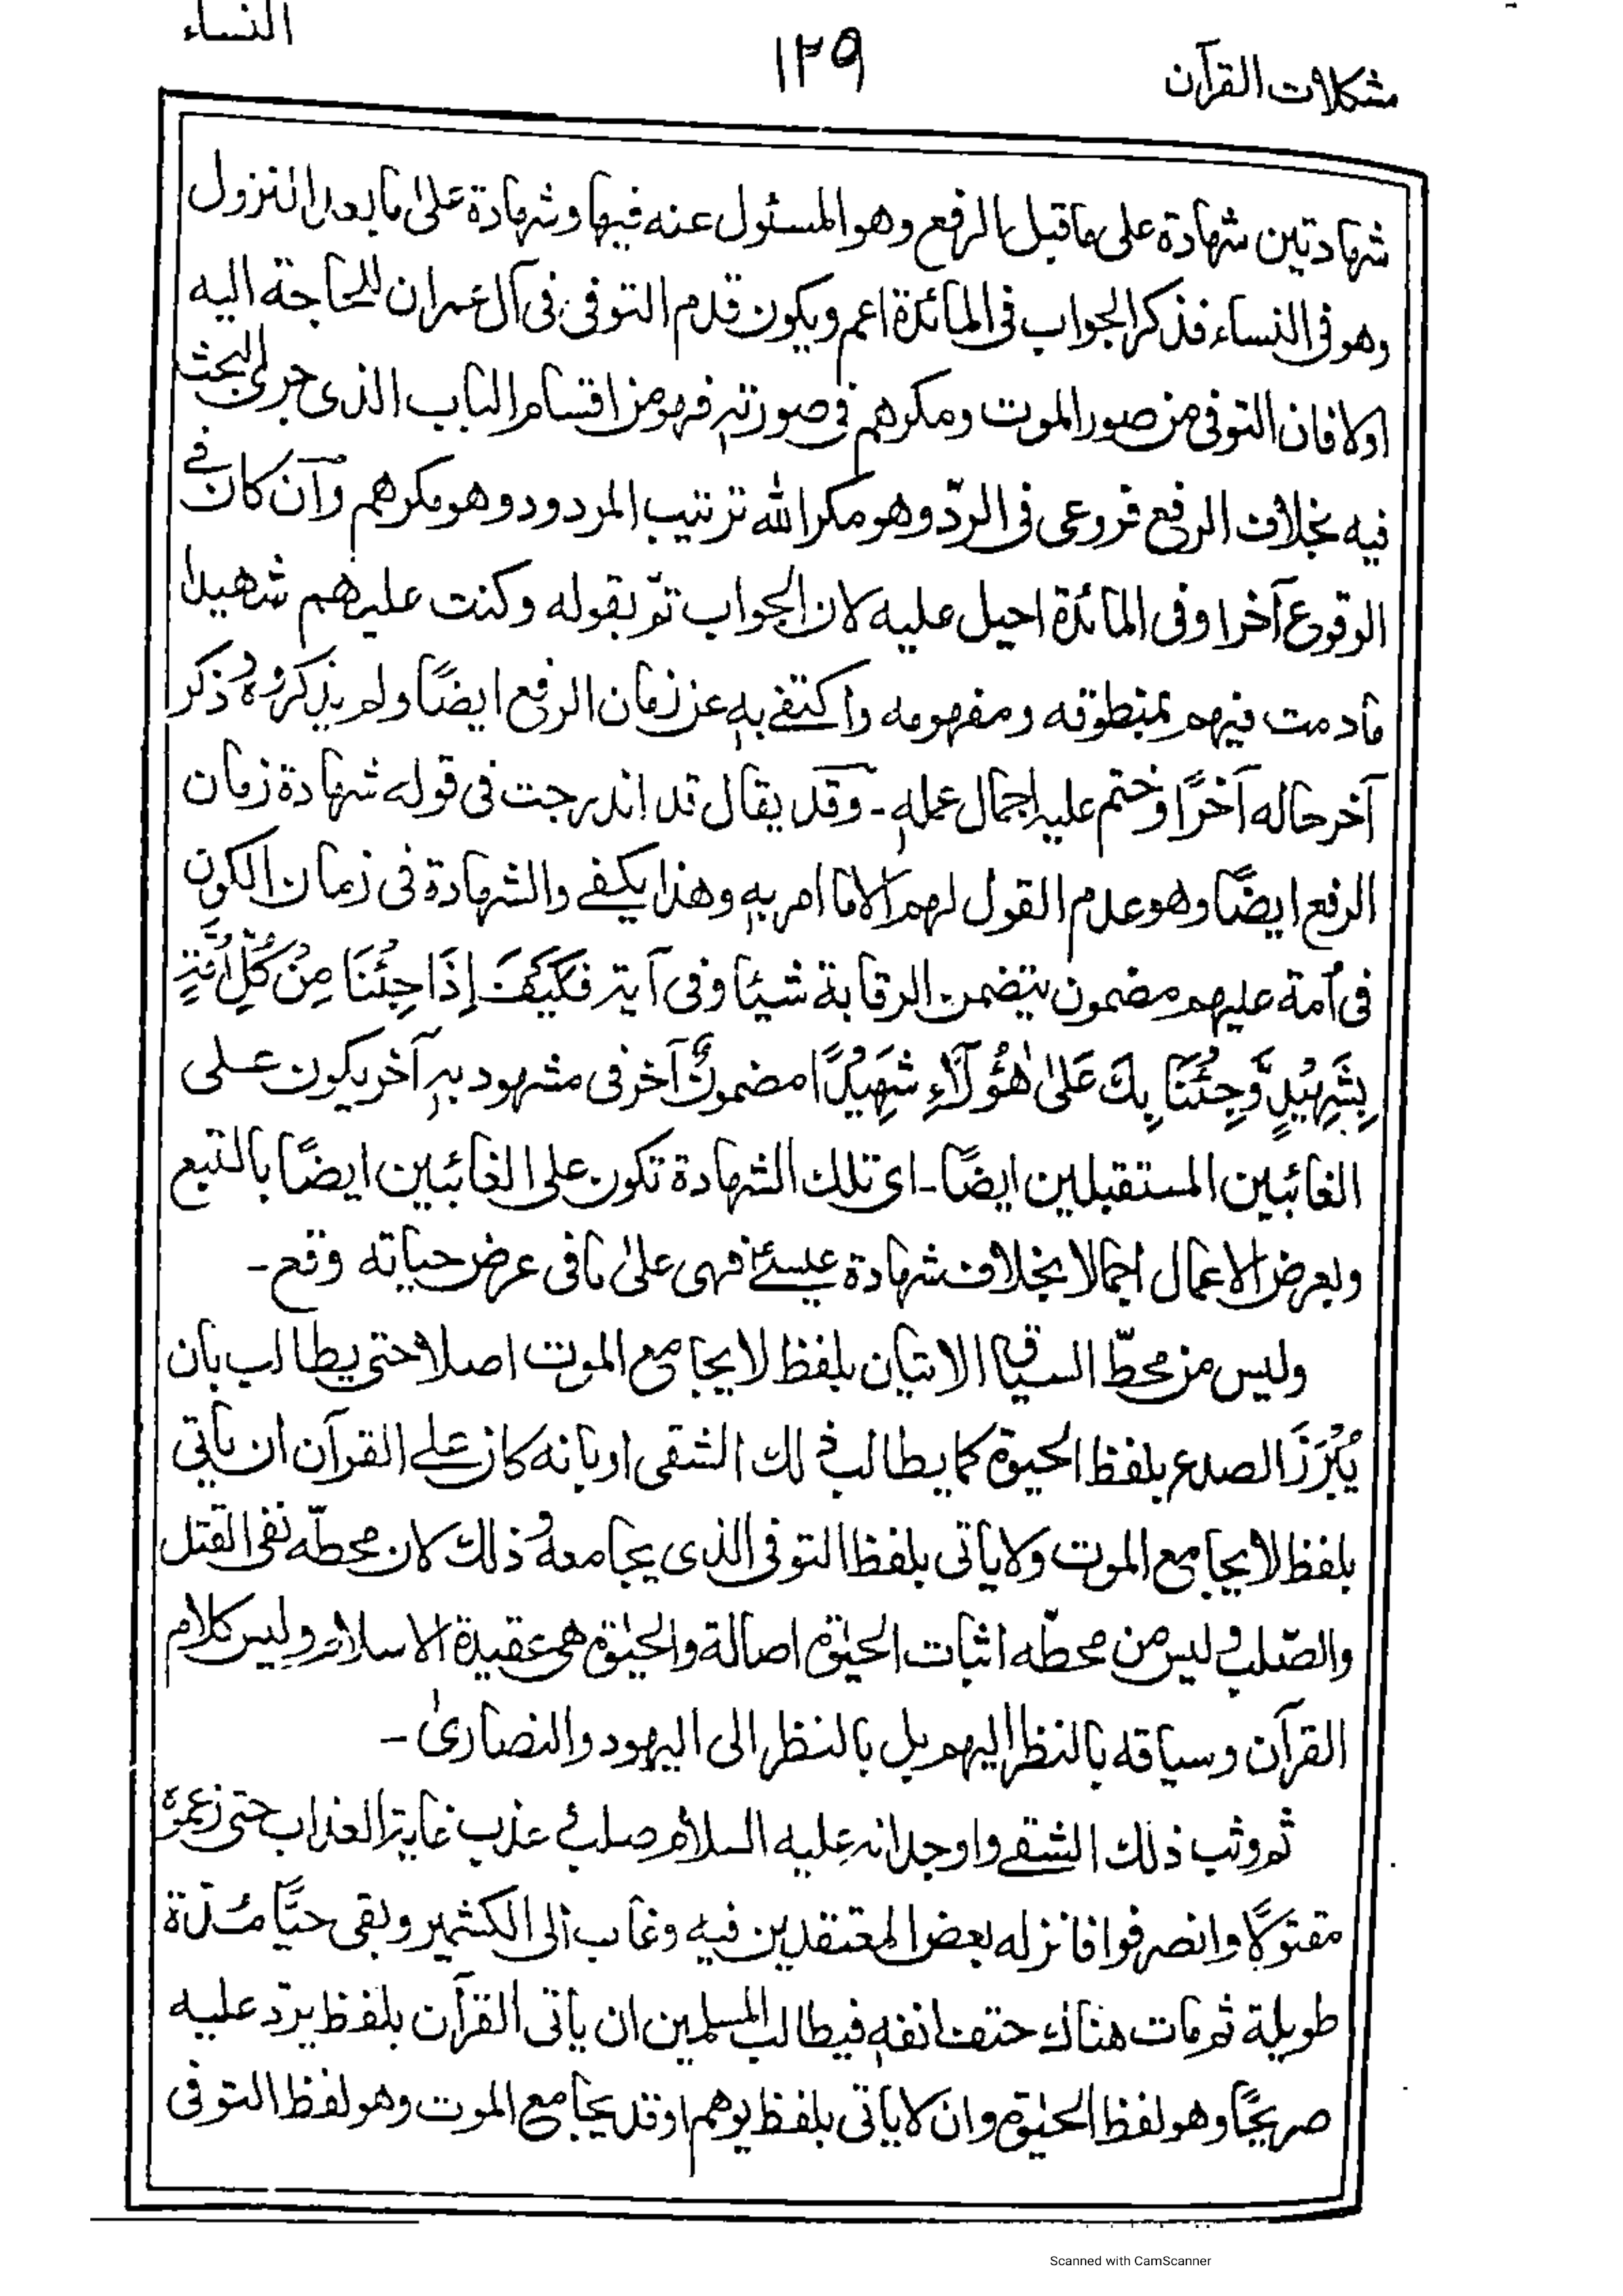 مشكلات القرآن
١٢٩
النساء
شهادتين شهادة على ما قبل الرفع وهو المسئول عنه فيها وشهادة على ما بعد النزول
وهو فى النساء فذكر الجواب فى المائدة اعم ويكون قدم التوفى فى آل عمران للحاجة اليه
اولا فان التوفى من صور الموت ومكرهم فى صورته فهو من اقسام الباب الذى جرى البحث
فيه بخلاف الرفع فروعى فى الردّ وهو مكر الله ترتيب المردود وهو مكرهم وان كان فى
الوقوع آخرا وفى المائدة احيل عليه لان الجواب تمّ بقوله وكنت عليهم شهيدا
ما دمت فيهم بمنطوقه ومفهومه واكتفى به عن زمان الرفع ايضًا ولم يذكره وذكر
آخر حاله آخرًا وختم عليه اجمال عمله ـ وقد يقال قد اندرجت فى قوله شهادة زمان
الرفع ايضًا وهو عدم القول لهم الا ما امر به وهذا يكفى والشهادة فى زمان الكون
فى امة عليهم مضمون يتضمن الرقابة شيئا وفى آية فَكَيْفَ إِذَا جِئْنَا مِنْ كُلِّ أُمَّةٍ
بِشَهِيْدٍ وَّجِئْنَا بِكَ عَلىٰ هٰؤُلَآءِ شَهِيْدًا مضمونٌ آخر فى مشهود به آخر يكون على
الغائبين المستقبلين ايضًا ـ اى تلك الشهادة تكون على الغائبين ايضًا بالتبع
وبعرض الاعمال اجمالا بخلاف شهادة عيسىٰ فهى على ما فى عرض حياته وقع ـ
وليس من محطّ السياق الاتيان بلفظ لا يجامع الموت اصلا حتى يطالب بان
يُبْرَزَ الصدع بلفظ الحيوة كما يطالب ذلك الشقى او بانه كان على القرآن ان ياتى
بلفظ لا يجامع الموت ولا ياتى بلفظ التوفى الذى يجامعه وذلك لان محطّه نفى القتل
والصّلب وليس من محطّه اثبات الحيٰوة اصالة والحيٰوة هى عقيدة الاسلام وليس كلام
القرآن وسياقه بالنظر اليهم بل بالنظر الى اليهود والنصارىٰ ـ
ثم وثب ذلك الشقى واوجد انه عليه السلام صلب وعذب غاية العذاب حتى زعموه
مقتولًا وانصرفوا فانزله بعض المعتقدين فيه وغاب الى الكشمير وبقى حيًّا مدّة
طويلة ثم مات هناك حتف انفه فيطالب المسلمين ان ياتى القرآن بلفظ يردّ عليه
صريحًا وهو لفظ الحيٰوة وان لا ياتى بلفظ يوهم او قد يجامع الموت وهو لفظ التوفى
Scanned with CamScanner